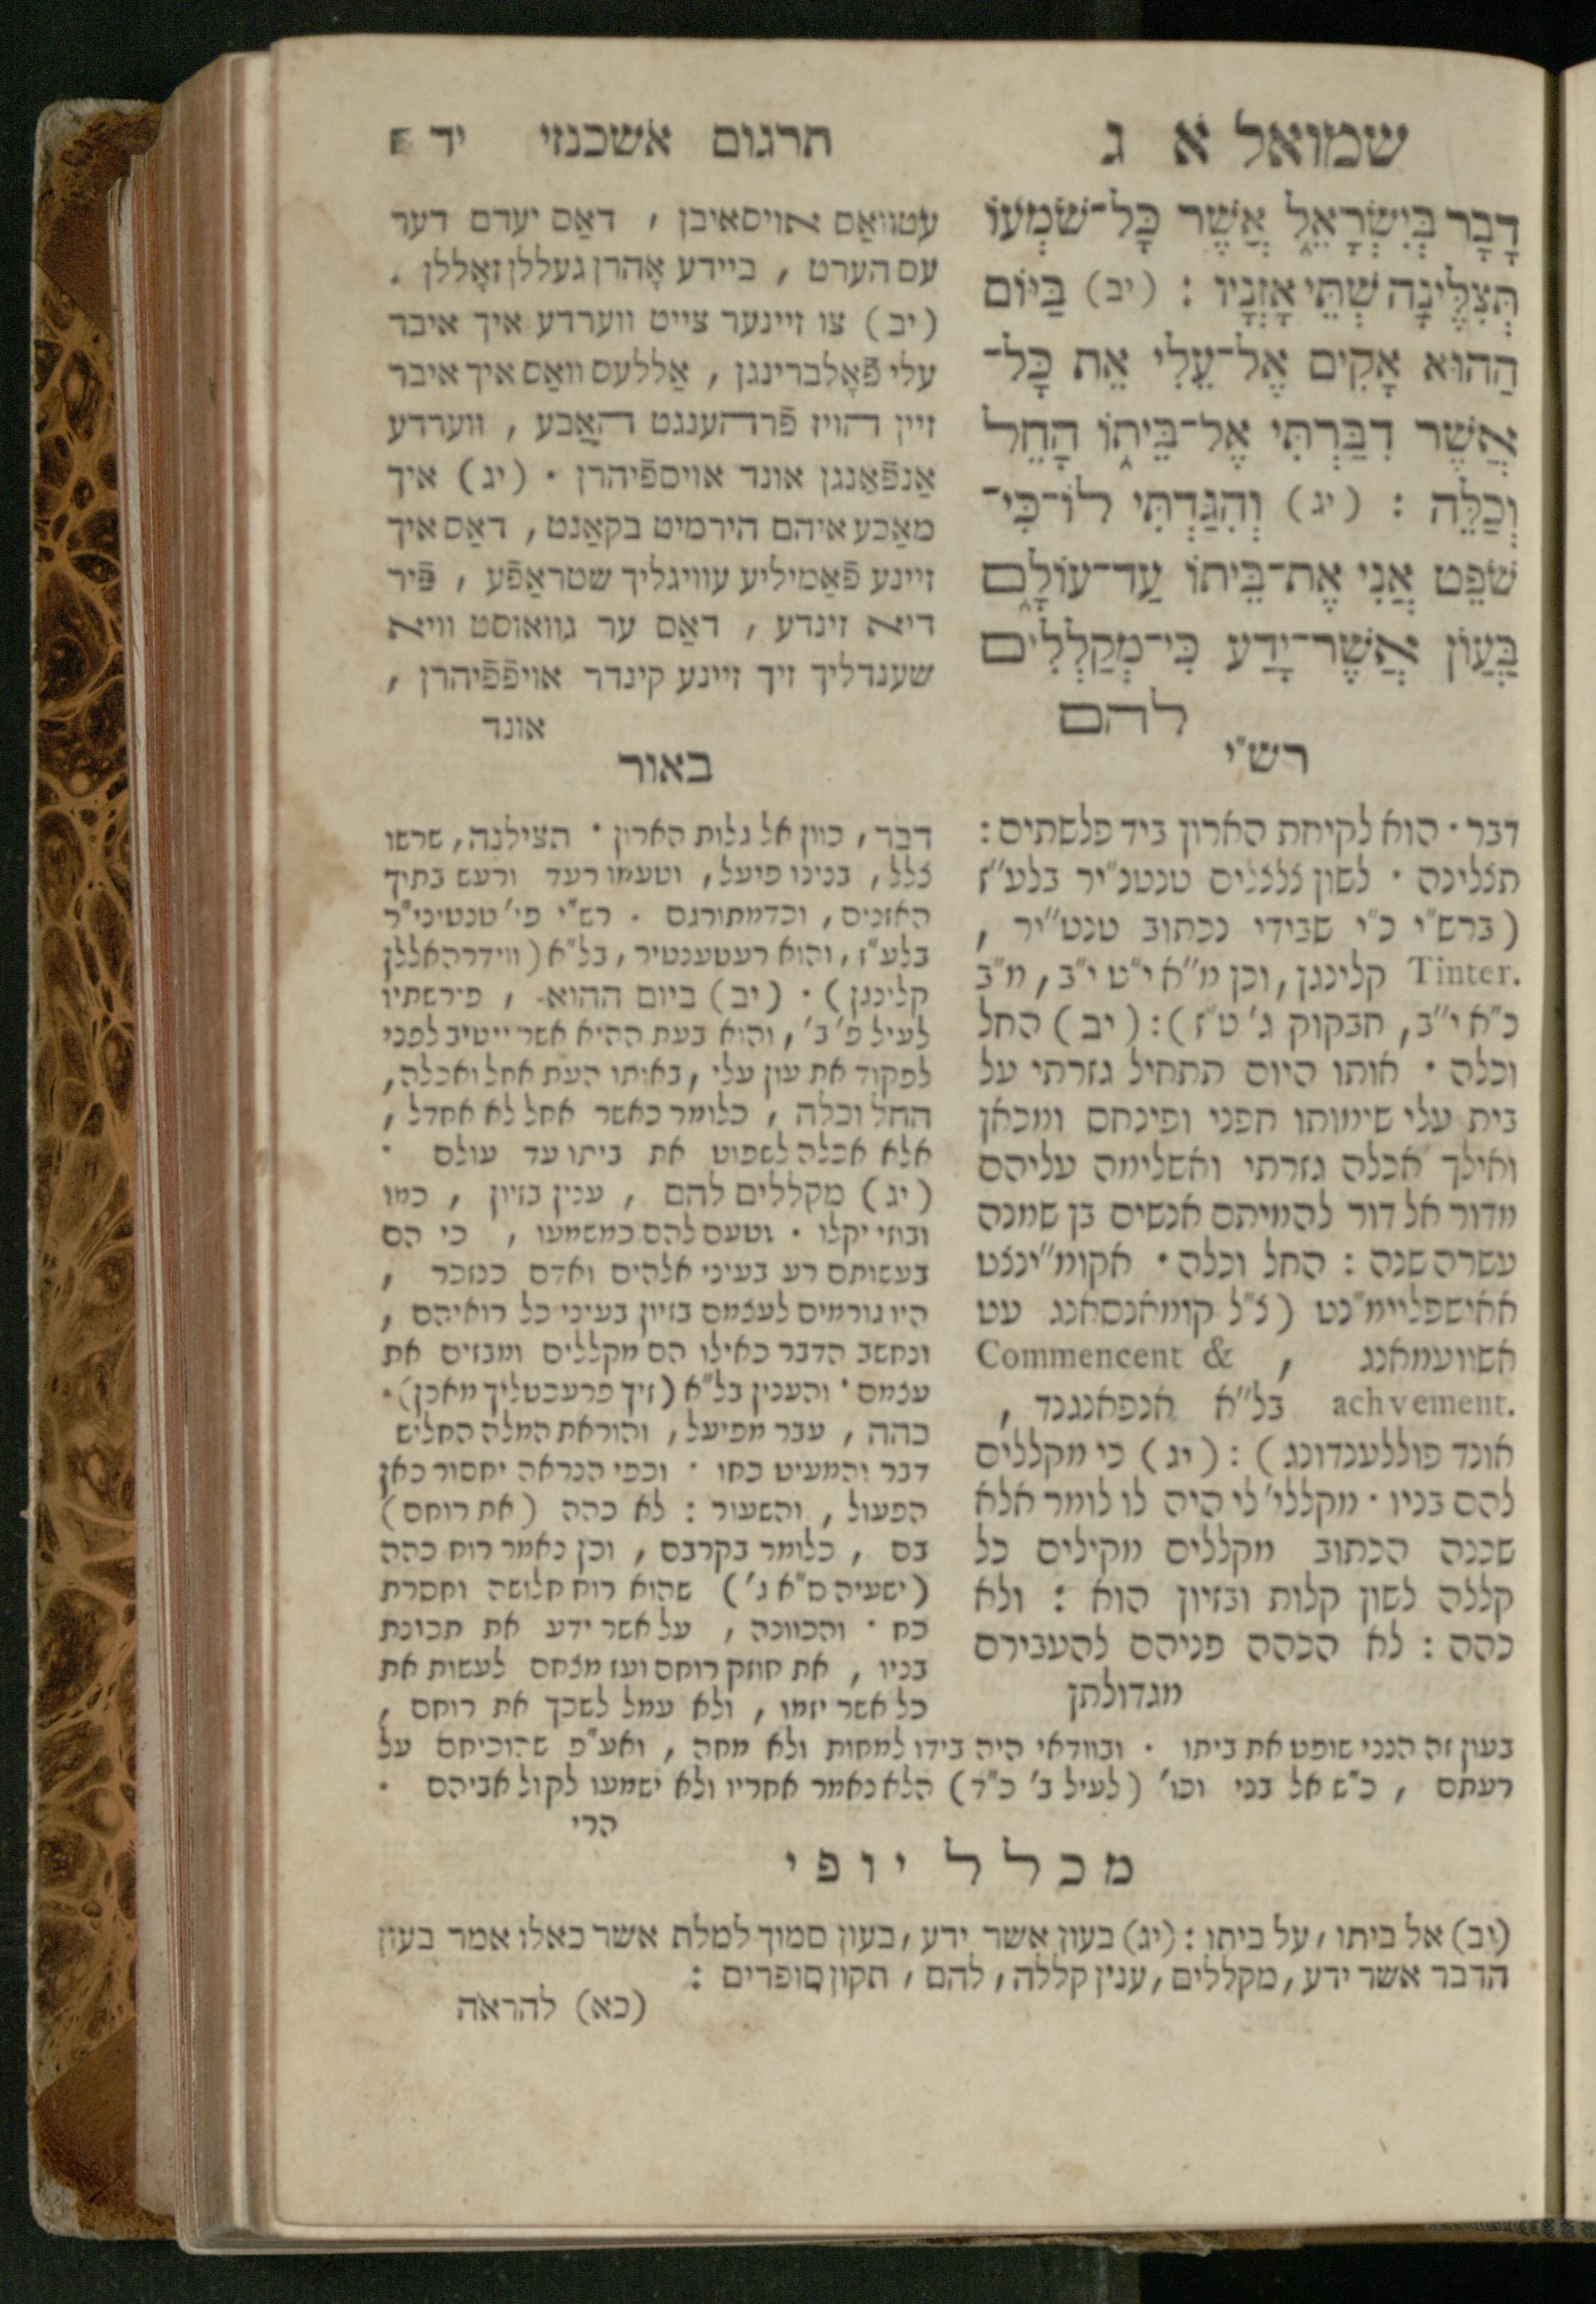 שמואל א ג
תרגום אשכנזי יד
דָבָר בְּיִשְׂרָאֵל אֲשֶׁר כָּל־שֹׁמְעוֹ
תְּצִלֶּינָה שְׁתֵּי אָזְנָיו : (יב) בַּיּוֹם
הַהוּא אָקִים אֶל־עֵלִי אֵת כָּל־
אֲשֶׁר דִבַּרְתִּי אֶל־בֵּיתוֹ הָחֵל
וְכַלֵּה : (יג) וְהִגַּדְתִּי לוֹ־כִּי־
שֹׁפֵט אֲנִי אֶת־בֵּיתוֹ עַד־עוֹלָם
בַּעֲוֹן אֲשֶׁר־יָדַע כִּי־מְקַלְלִים
להם
עטוואַס אויסאיבן , דאַס יעדם דער
עס הערט , ביידע אָהרן געללן זאָללן .
(יב) צו זיינער צייט ווערדע איך איבר
עלי פֿאָלברינגן , אַללעס וואַס איך איבר
זיין הויז פֿרהענגט האָבע , ווערדע
אַנפֿאַנגן אונד אויספֿיהרן . (יג) איך
מאַכע איהם הירמיט בקאַנט , דאַס איך
זיינע פֿאַמיליע עוויגליך שטראַפֿע , פֿיר
דיא זינדע , דאַס ער גוואוסט וויא
שענדליך זיך זיינע קינדר אויפֿפֿיהרן ,
אונד
רש"י
דבר . הוא לקיחת הארון ביד פלשתים :
תצלינה . לשון צלצלים טנטנ"יר בלע"ז
(ברש"י כ"י שבידי נכתוב טנט"יר ,
Tinter. קלינגן , וכן מ"א י"ט י"ב , מ"ב
כ"א י"ב , חבקוק ג' ט"ז) : (יב) החל
וכלה . אותו היום תתחיל גזרתי על
בית עלי שימותו חפני ופינחס ומכאן
ואילך אכלה גזרתי ואשלימה עליהם
מדור אל דור להמיתם אנשים בן שמנה
עשרה שנה : החל וכלה . אקומ"ינצט
אאישפליימ"נט (צ"ל קומאנסאנג עט
אשוועמאנג , Commencent &
achvement. בל"א אנפאנגנד ,
אונד פוללענדונג) : (יג) כי מקללים
להם בניו . מקללי' לי היה לו לומר אלא
שכנה הכתוב מקללים מקילים כל
קללה לשון קלות ובזיון הוא : ולא
כהה : לא הכהה פניהם להעבירם
מגדולתן
באור
דבר , כוון אל גלות הארון . תצילנה , שרשו
צלל , בנינו פיעל , וטעמו רעד ורעש בתיך
האזנים , וכדמתורגם . רש"י פי' טנטיני"ר
בלע"ז , והוא רעטענטיר , בל"א (ווידרהאללן
קלינגן) . (יב) ביום ההוא , פירשתיו
לעיל פ' ב' , והוא בעת ההיא אשר ייטיב לפני
לפקוד את עון עלי , באותו העת אחל ואכלה ,
החל וכלה , כלומר כאשר אחל לא אחדל ,
אלא אכלה לשפוט את ביתו עד עולם .
(יג) מקללים להם , ענין בזיון , כמו
ובוזי יקלו . וטעם להם כמשמעו , כי הם
בעשותם רע בעיני אלהים ואדם כנזכר ,
היו גורמים לעצמם בזיון בעיני כל רואיהם ,
ונחשב הדבר כאילו הם מקללים ומבזים את
עצמם . והענין בל"א (זיך פרעכטליך מאכן) .
כהה , עבר מפיעל , והוראת המלה החליש
דבר והמעיט כחו . וכפי הנראה יחסור כאן
הפעול , והשעור : לא כהה (את רוחם)
בם , כלומר בקרבם , וכן נאמר רוח כהה
(ישעיה ס"א ג') שהוא רוח חלושה וחסרת
כח . והכוונה , על אשר ידע את תכונת
בניו , את חוזק רוחם ועז מצחם לעשות את
כל אשר יזמו , ולא עמל לשכך את רוחם ,
בעון זה הנני שופט את ביתו . ובוודאי היה בידו למחות ולא מחה , ואע"פ שהוכיחם על
רעתם , כ"ש אל בני וכו' (לעיל ב' כ"ד) הלא נאמר אחריו ולא ישמעו לקול אביהם .
הרי
מכלל יופי
(יב) אל ביתו , על ביתו : (יג) בעון אשר ידע , בעון סמוך למלת אשר כאלו אמר בעון
הדבר אשר ידע , מקללים , ענין קללה , להם , תקון סופרים :
(כא) להראה